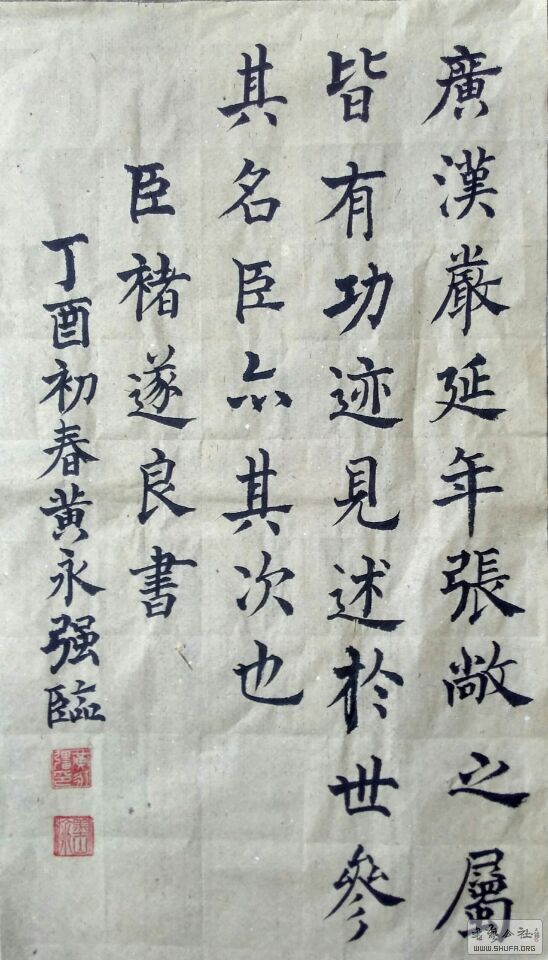 廣漢嚴延年張敞之屬
皆有功迹見述於世叅
其名臣亦其次也
臣褚遂良書
丁酉初春黄永强臨
WWW.SHUFA.ORG